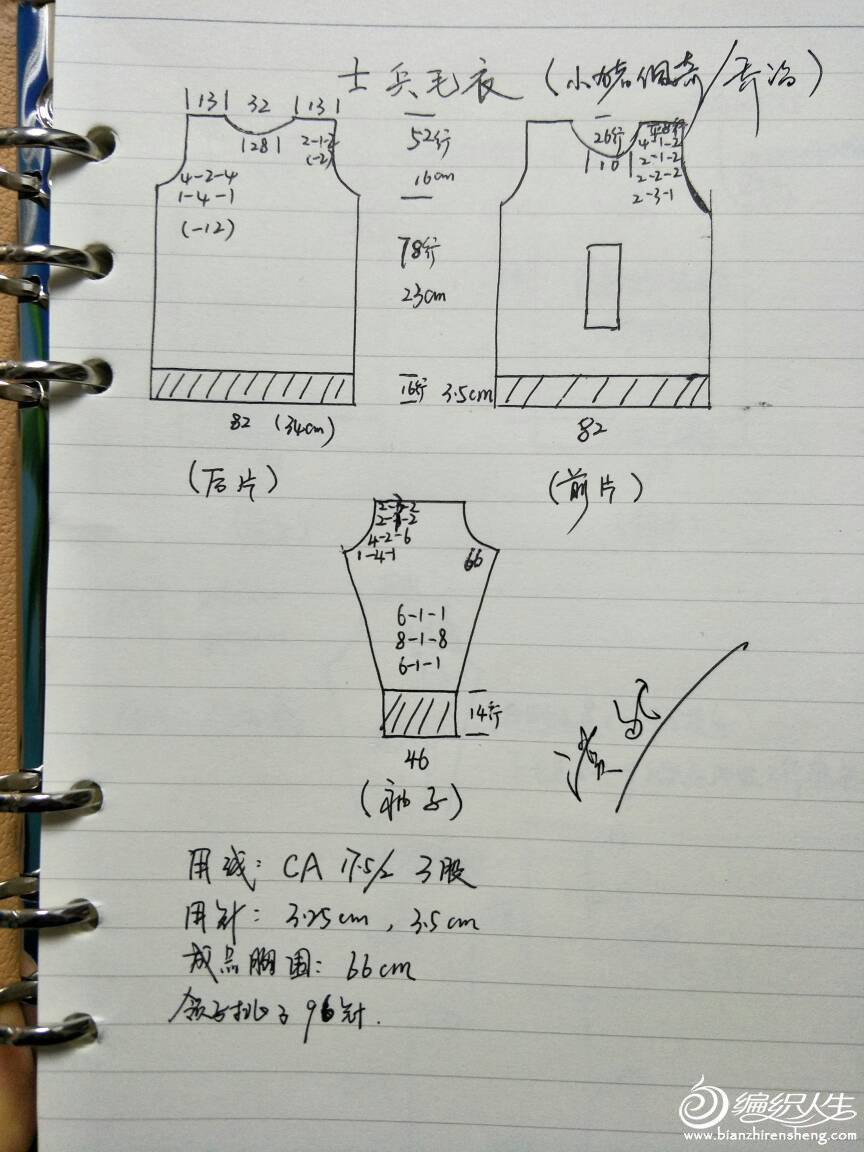 士兵毛衣 (小猪佩奇/乔治)
|13| 32 |13|
|28|
2-1-2
(-2)
4-2-4
1-4-1
(-12)
82 (34cm)
(后片)
52行
16cm
78行
23cm
16行 3.5cm
26行
|10|
平8行
4-1-2
2-1-2
2-2-2
2-3-1
82
(前片)
4-2-6
1-4-1
66
6-1-1
8-1-8
6-1-1
14行
46
(袖子)
用线: CA 17.5/2 3股
用针: 3.25cm, 3.5cm
成品胸围: 66cm
领子挑了96针.
编织人生
www.bianzhirensheng.com